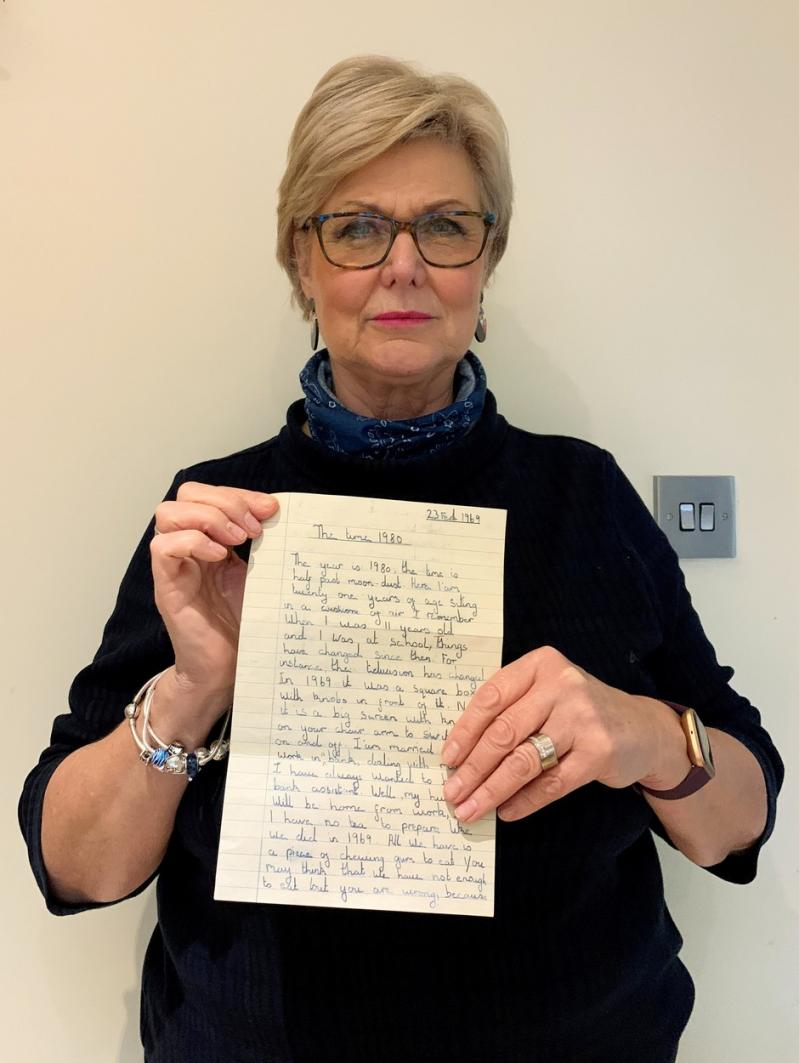 23 Feb 1969
The time 1980
The year is 1980, the time is
half past moon-dust. Here I am,
twenty one years of age siting
in a cushione of air I remember
When I was 11 years old
and I was at school, things
have changed since then. For
instance, the television has changed
In 1969 it was a square box
With knobs in front of it. N
it is a big screen with kn
on your chair arm to swit
on and off. I am married
work in bank dealing with m
I have always wanted to
bank assistint. Well, my hu
Will be home from work,
I have no tea to prepare like
We did in 1969. All we have is
a piece of chewing gum to eat You
may think that we have not enough
to eat but you are wrong, because